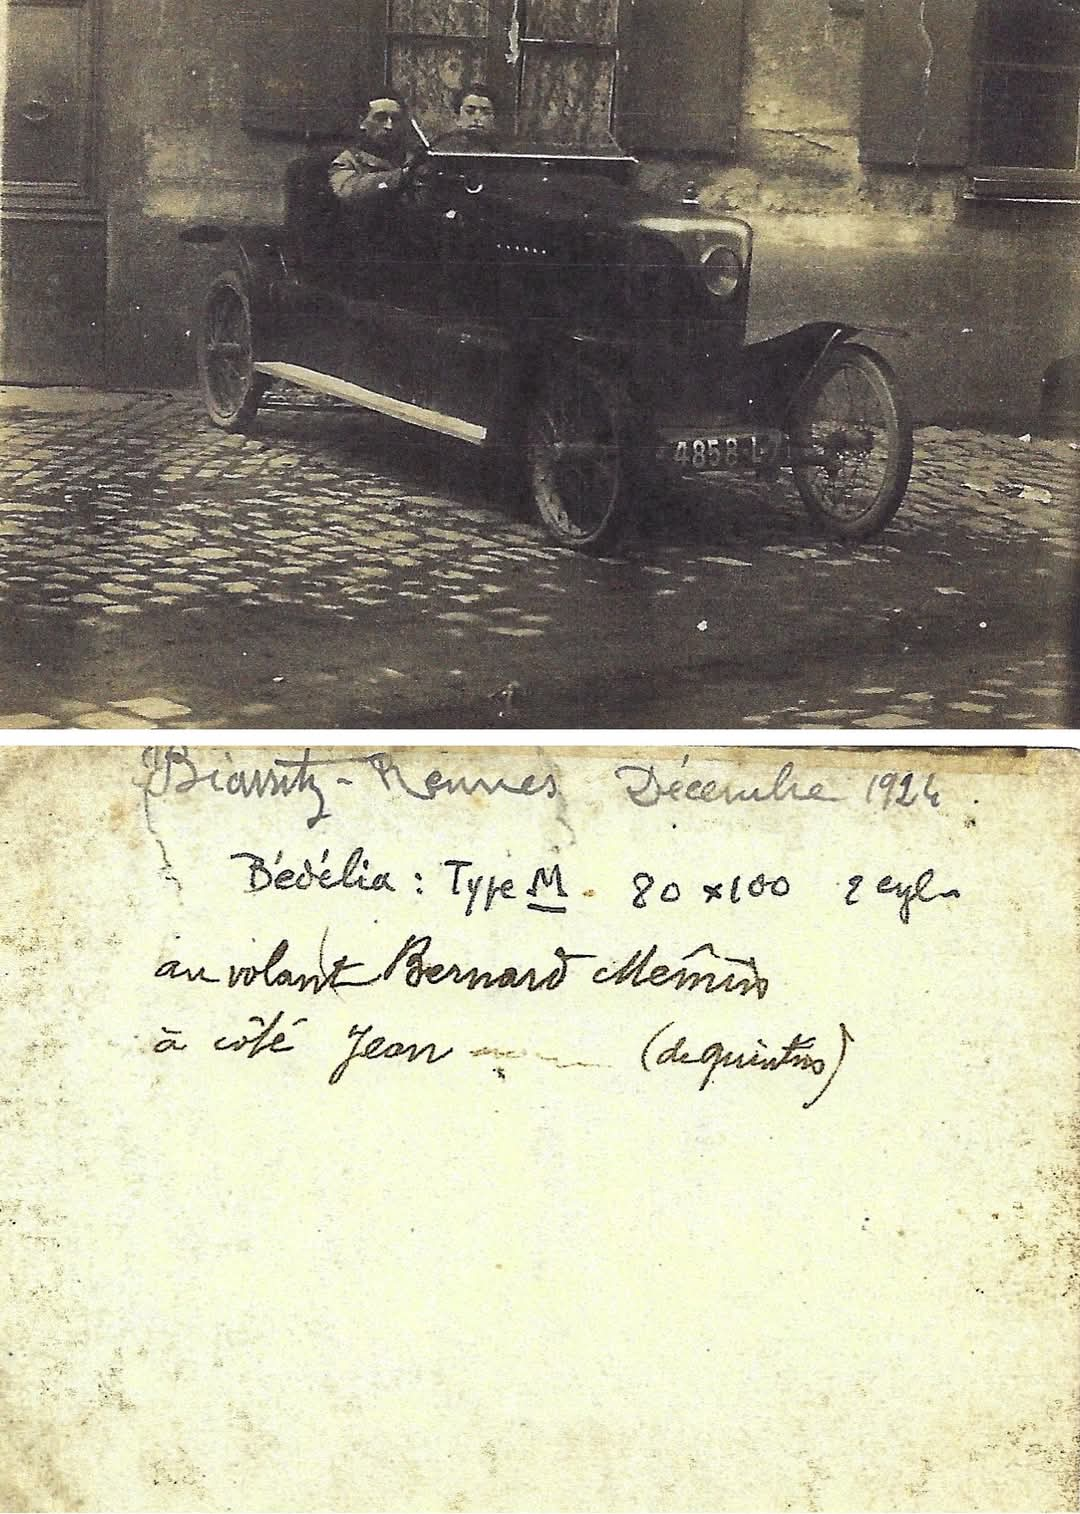 4858 L
Biarritz - Rennes Décembre 1924.
Bédélia : Type M. 80 x 100 2 cyl.
au volant Bernard
à côté Jean (de quintus)